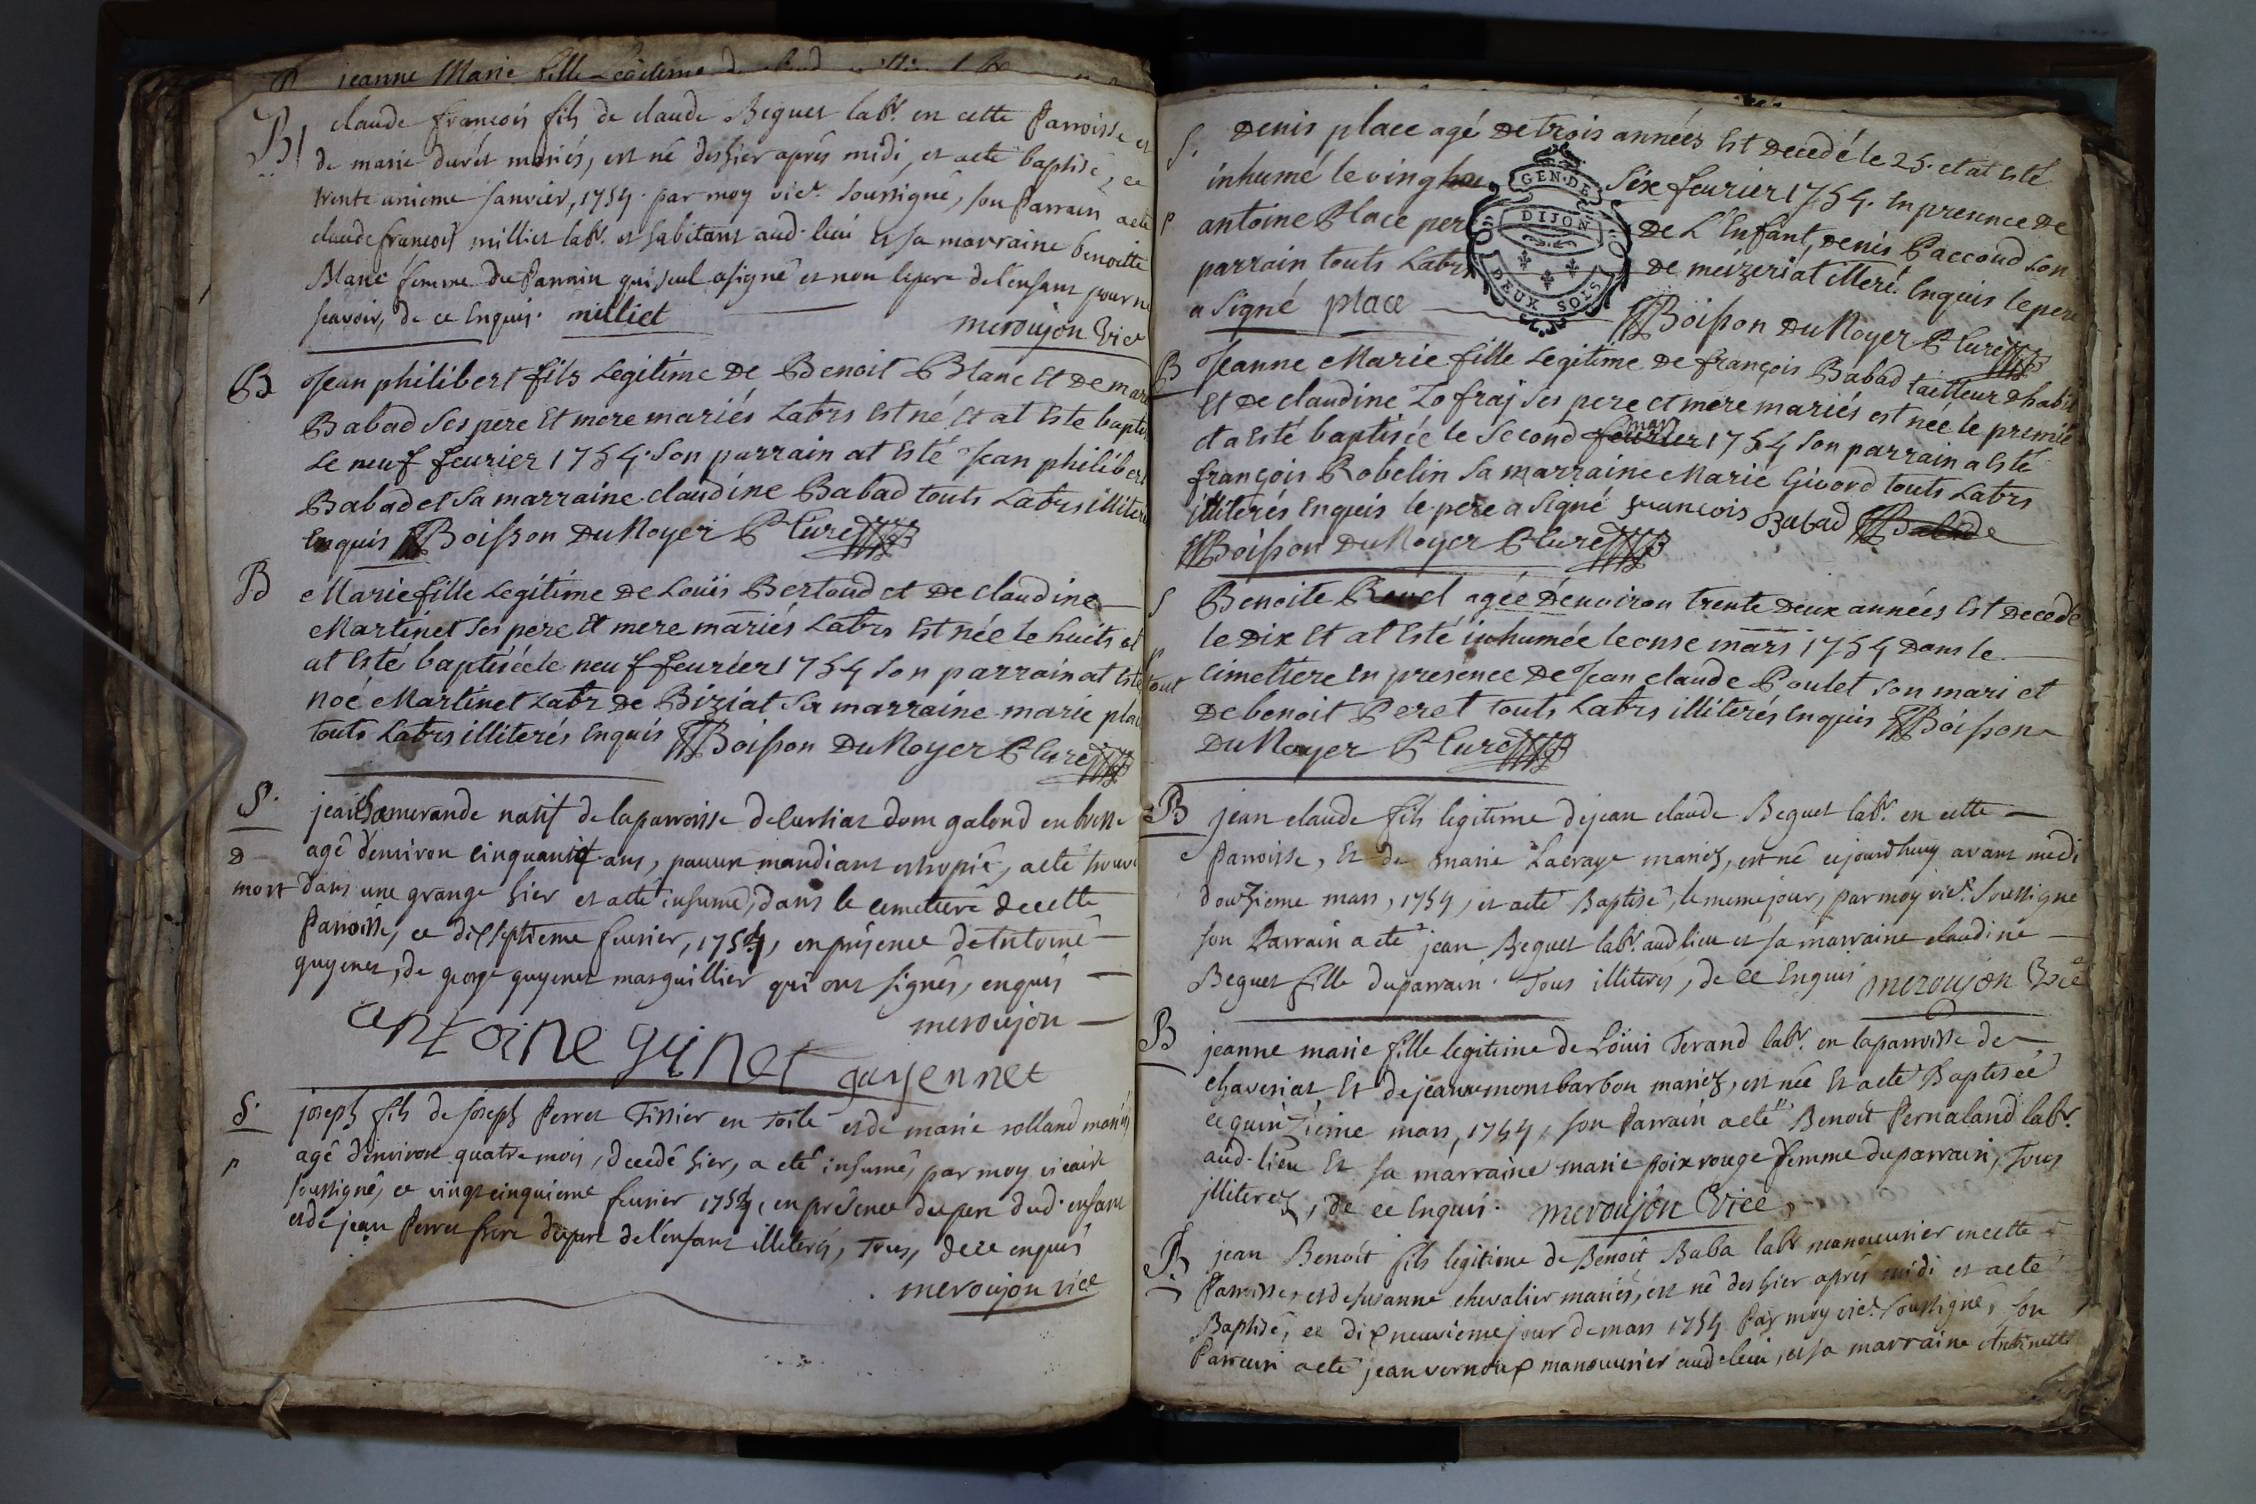 B jeanne Marie fille Legitime
B claude françois fils de claude Beguet labr. en cette Parroisse et
de marie durêt mariés, est né deshier aprés midi, et aeté baptisé, ce
trente unieme Janvier, 1754. par moy vicr. soussigné, son Parrain aeté
claude françois milliet labr. et habitant aud. lieu et sa marraine benoitte
Blanc femme du Parrain qui seul asigné et non lepere del'enfant pour ne
scavoir, de ce Enquis. milliet
meroujon Vicr
B Jean philibert fils Legitime De Benoit Blanc Et De marie
Babad ses pere Et mere mariés Labrs Est né Et at Este baptisé
Le neuf feurier 1754. Son parrain at Esté Jean philibert
Babad et Sa marraine claudine Babad touts Labrs illiterés
Enquis Boisson Du Noyer P Curé
B Marie fille Legitime De Louis Bertoud et De claudine
Martinet ses pere Et mere mariés Labrs Est née le huit et
at Esté baptisée le neuf feurier 1754 Son parrain at Esté
noé Martinet Labr De Biziat Sa marraine marie place
touts Labrs illiterés Enquis Boisson Du Noyer P Curé
S. jean chamerande natif de laparroisse de Curtiat dom galond en bresse
D agé d'environ cinquante ans, pauvre mandiant estropié, aeté trouvé
mort dans une grange hier et aeté inhumé, dans le cemetiere decette
Parroisse, ce dixseptieme feurier, 1754, en présence
guyenet, de george guyenet marguillier qui ont signés, enquis
meroujon
antoine gyinet
guyennet
S. joseph fils de joseph Perret Tissier en toile et de marie rolland mariés
P agé d'environ quatre mois, decedé hier, a eté inhumé, par moy vicaire
soussigné, ce vingtcinquieme feurier 1754, en présence dupere dud. enfant
et de jean Perret frere dupere de l'enfant illiterés, Tous, dece enquis
meroujon vice
S. Denis place agé De trois années Est Decedé le 25. et at Esté
inhumé le vingt Six feurier 1754. En presence De
P antoine Place pere De L'Enfant, Denis Paccoud Son
parrain touts Labrs De meizeriat illeré. Enquis le pere
a Signé place Boisson Du Noyer P Curé
GEN. DE
DIJON
DEUX SOLS
B Jeanne Marie fille Legitime De françois Babad tailleur d'habit
Et De claudine Zofraj ses pere et mere mariés est née le premie
et a Esté baptisée le Second feurier mars 1754 Son parrain a Esté
françois Robelin Sa marraine Marie Givord touts Labrs
illiterés Enquis le pere a Signé françois Babad
Boisson Du Noyer P Curé
S Benoite agée D'enuiron trente Deux années Est Decedé
le Dix Et at Esté inhumée le onse mars 1754 Dans le
tout cimetiere En presence De Jean claude Poulet Son mari et
De benoit Peret touts Labrs illiterés Enquis Boisson
Du Noyer P Curé
B jean claude fils legitime dejean claude Beguet labr. en cette
Parroisse, Et de marie Lacraye mariéz, est né cejourd'huy avant midi
douzieme mars, 1754, et aeté Baptisé, le memejour, par moy vicr. Soussigné
son Parrain a eté jean Beguet labr. aud lieu et sa marraine claudine
Beguet fille duparrain. Tous illiterés, de ce Enquis meroujon Vice
B jeanne marie fille legitime de Loüis Terand labr. en laparroisse de
chaveriat, Et dejeanne montbarbon mariéz, est née Et aeté Baptisée
ce quinzieme mars, 1754, son Parrain aeté Benoit Pernaland labr.
aud. lieu Et sa marraine marie poixrouge femme duparrain, Tous
illiteréz, de ce Enquis. meroujon Vice
B jean Benoit fils legitime de Benoit Baba labr manouurier en cette
Parroisse, et de susanne chevalier mariés, est né deshier aprés midi et aeté
Baptisé, ce dixneuvieme jour de mars 1754 Par moy vicr. soussigné, son
Parrain aeté jean vernoux manouurier aud. lieu, et sa marraine Antoinette